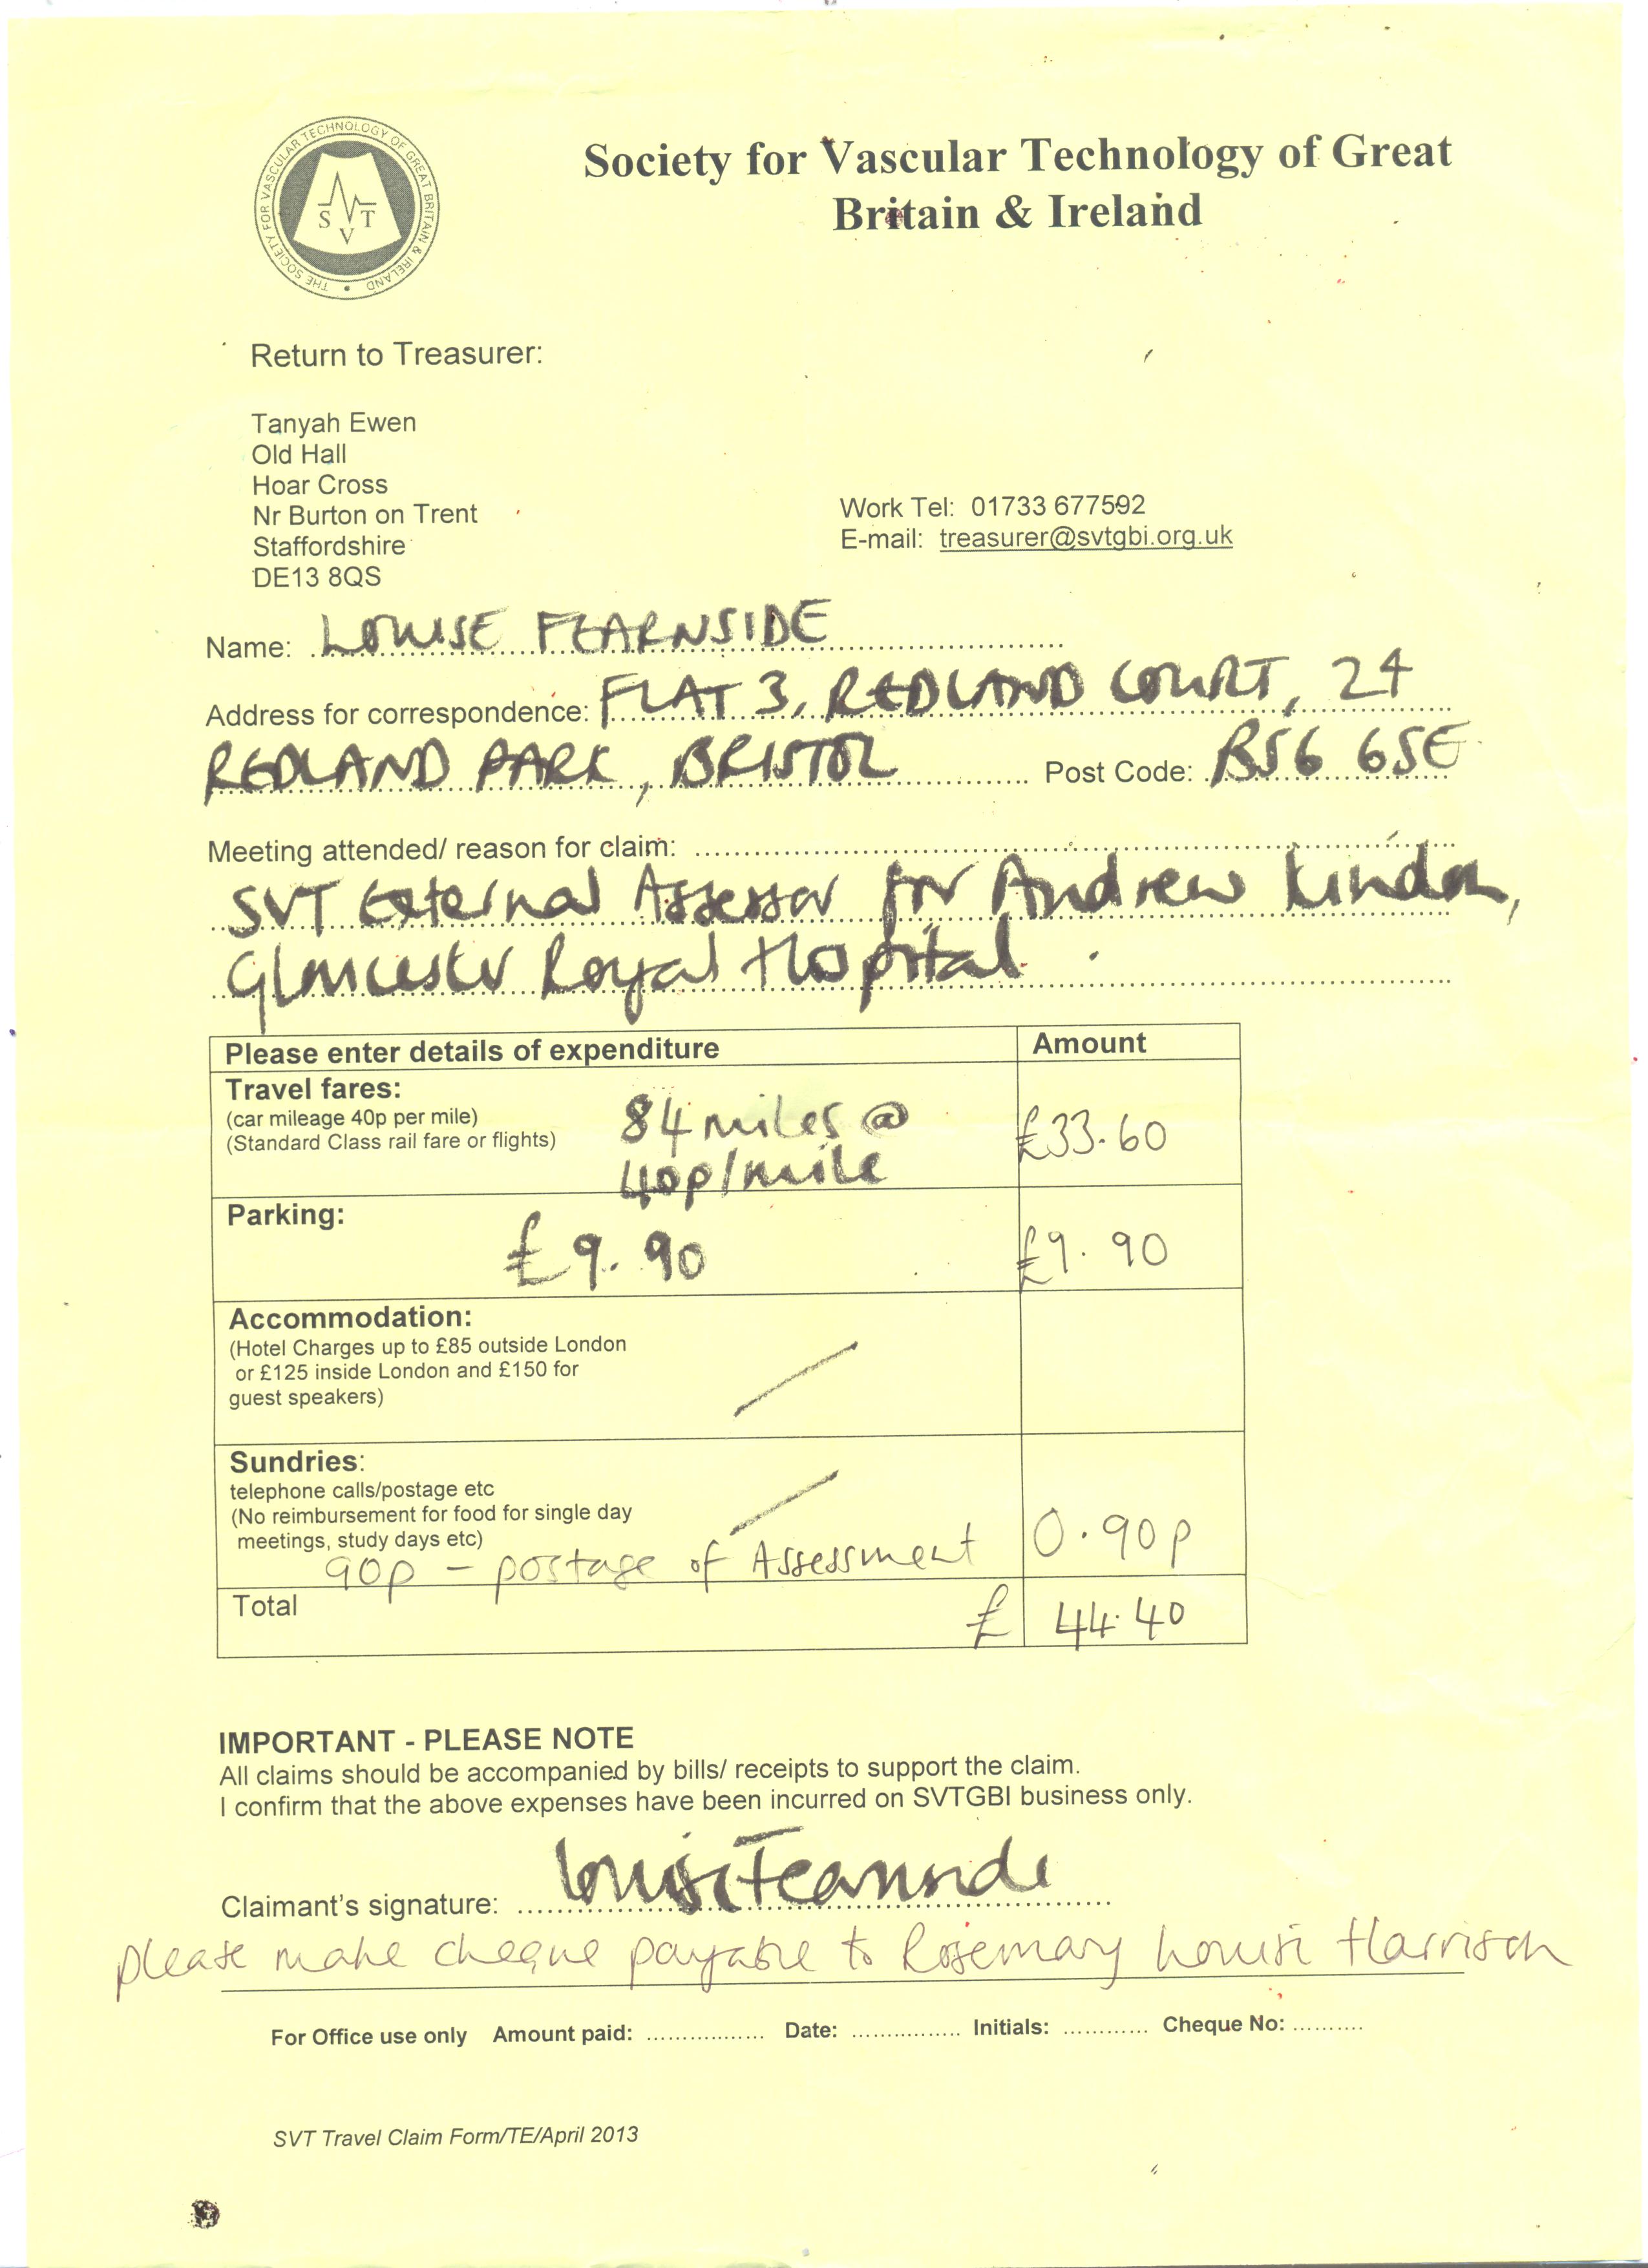 THE SOCIETY FOR VASCULAR TECHNOLOGY OF GREAT BRITAIN & IRELAND
S V T
Society for Vascular Technology of Great
Britain & Ireland
Return to Treasurer:
Tanyah Ewen
Old Hall
Hoar Cross
Nr Burton on Trent
Staffordshire
DE13 8QS
Work Tel: 01733 677592
E-mail: treasurer@svtgbi.org.uk
Name: LOUISE FEARNSIDE
Address for correspondence: FLAT 3, REDLAND COURT, 24
REDLAND PARK, BRISTOL Post Code: BS6 6SE
Meeting attended/ reason for claim:
SVT External Assessor for Andrew
Gloucester Royal Hospital.
Please enter details of expenditure Amount
Travel fares:
(car mileage 40p per mile)
(Standard Class rail fare or flights)
84 miles @
40p/mile
£33.60
Parking:
£9.90 £9.90
Accommodation:
(Hotel Charges up to £85 outside London
or £125 inside London and £150 for
guest speakers)
Sundries:
telephone calls/postage etc
(No reimbursement for food for single day
meetings, study days etc)
90p - postage of Assessment 0.90p
Total £ 44.40
IMPORTANT - PLEASE NOTE
All claims should be accompanied by bills/ receipts to support the claim.
I confirm that the above expenses have been incurred on SVTGBI business only.
Claimant's signature: Louise Fearnside
please make cheque payable to Rosemary Louise Harrison
For Office use only Amount paid: ................. Date: ................ Initials: ............ Cheque No: ..........
SVT Travel Claim Form/TE/April 2013